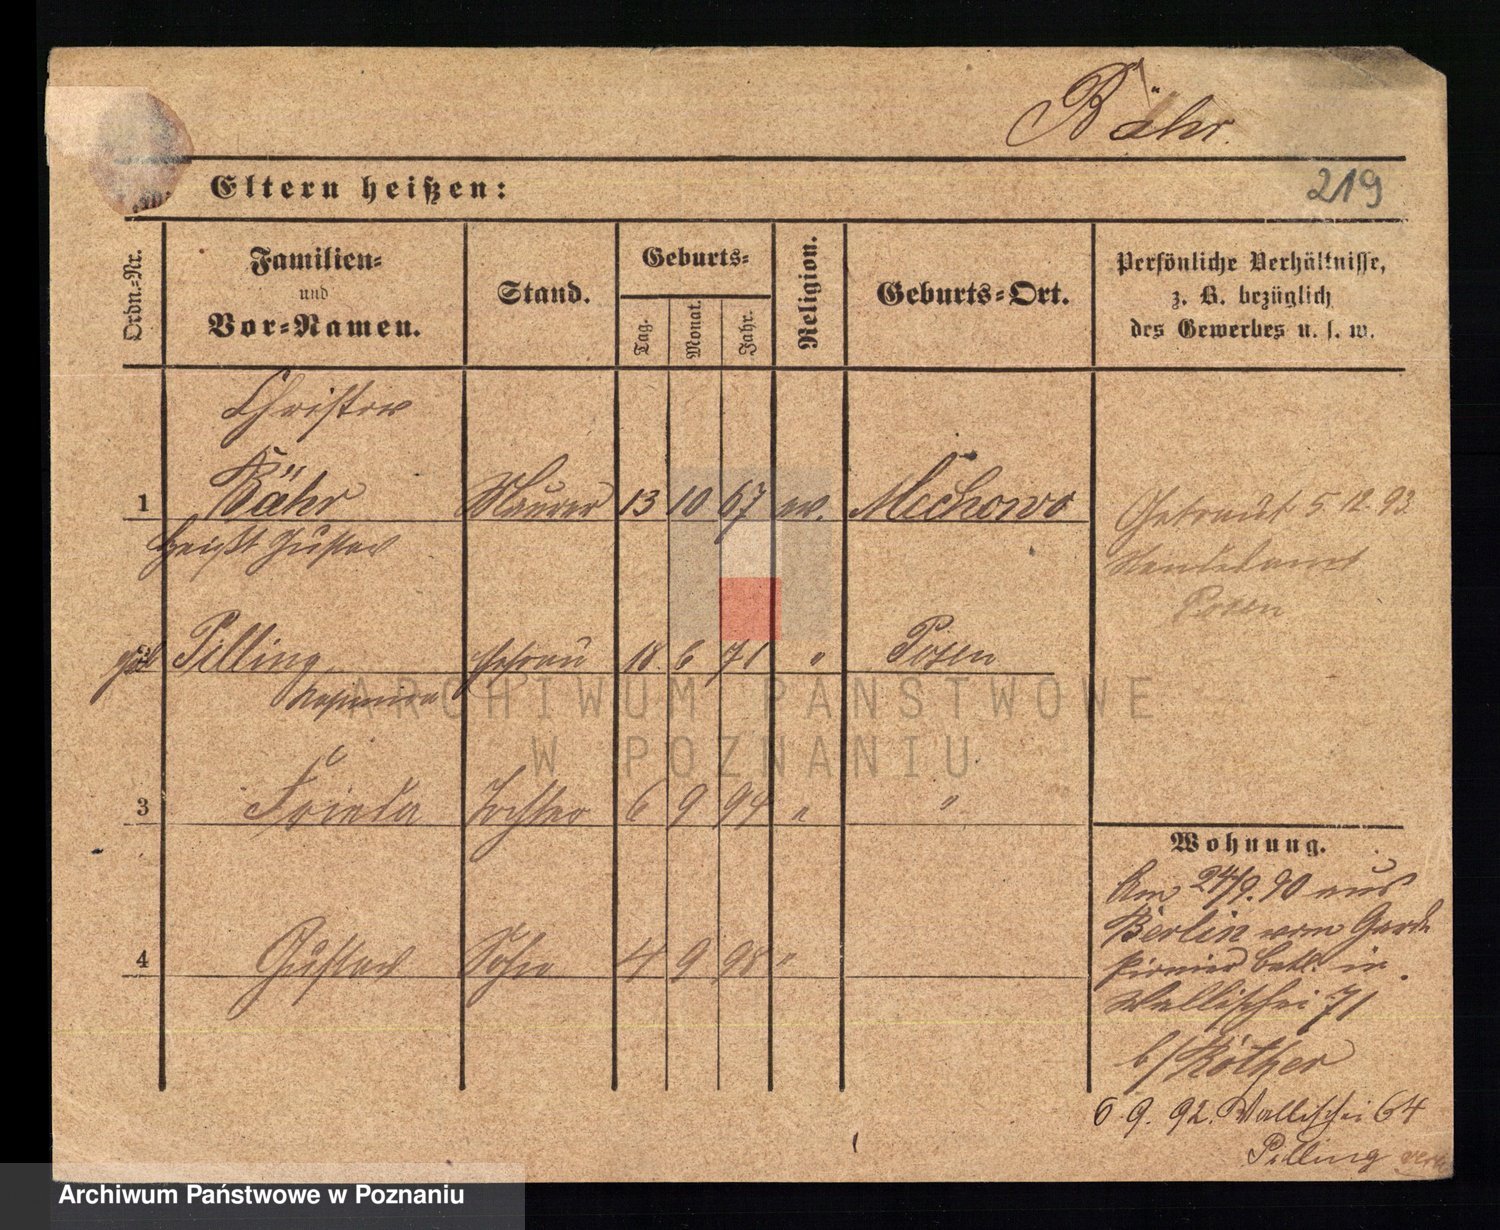 Bähr.
219
Eltern heißen:
Ordn.-Nr.
Familien-
und
Vor-Namen.
Stand.
Geburts-
Tag.
Monat.
Jahr.
Religion.
Geburts-Ort.
Persönliche Verhältnisse,
z. B. bezüglich
des Gewerbes u. s. w.
1
Bähr Maurer 13 10 67 ev. Mechowo
heißt Gustav
Getraut 5.12.93
Standesamt
Posen
Pilling Ehefrau 18. 6 71 " Posen
ARCHIWUM PAŃSTWOWE
W POZNANIU
3 Frieda Tochter 6 9 94 " "
4 Gustav Sohn 4 9 98 "
Wohnung.
Am 24/9.90 aus
Berlin vom Garde
Pionier Batl. in
Wallischei 71
b/ Röther
6.9.92. Wallischei 64
Pilling
Archiwum Państwowe w Poznaniu